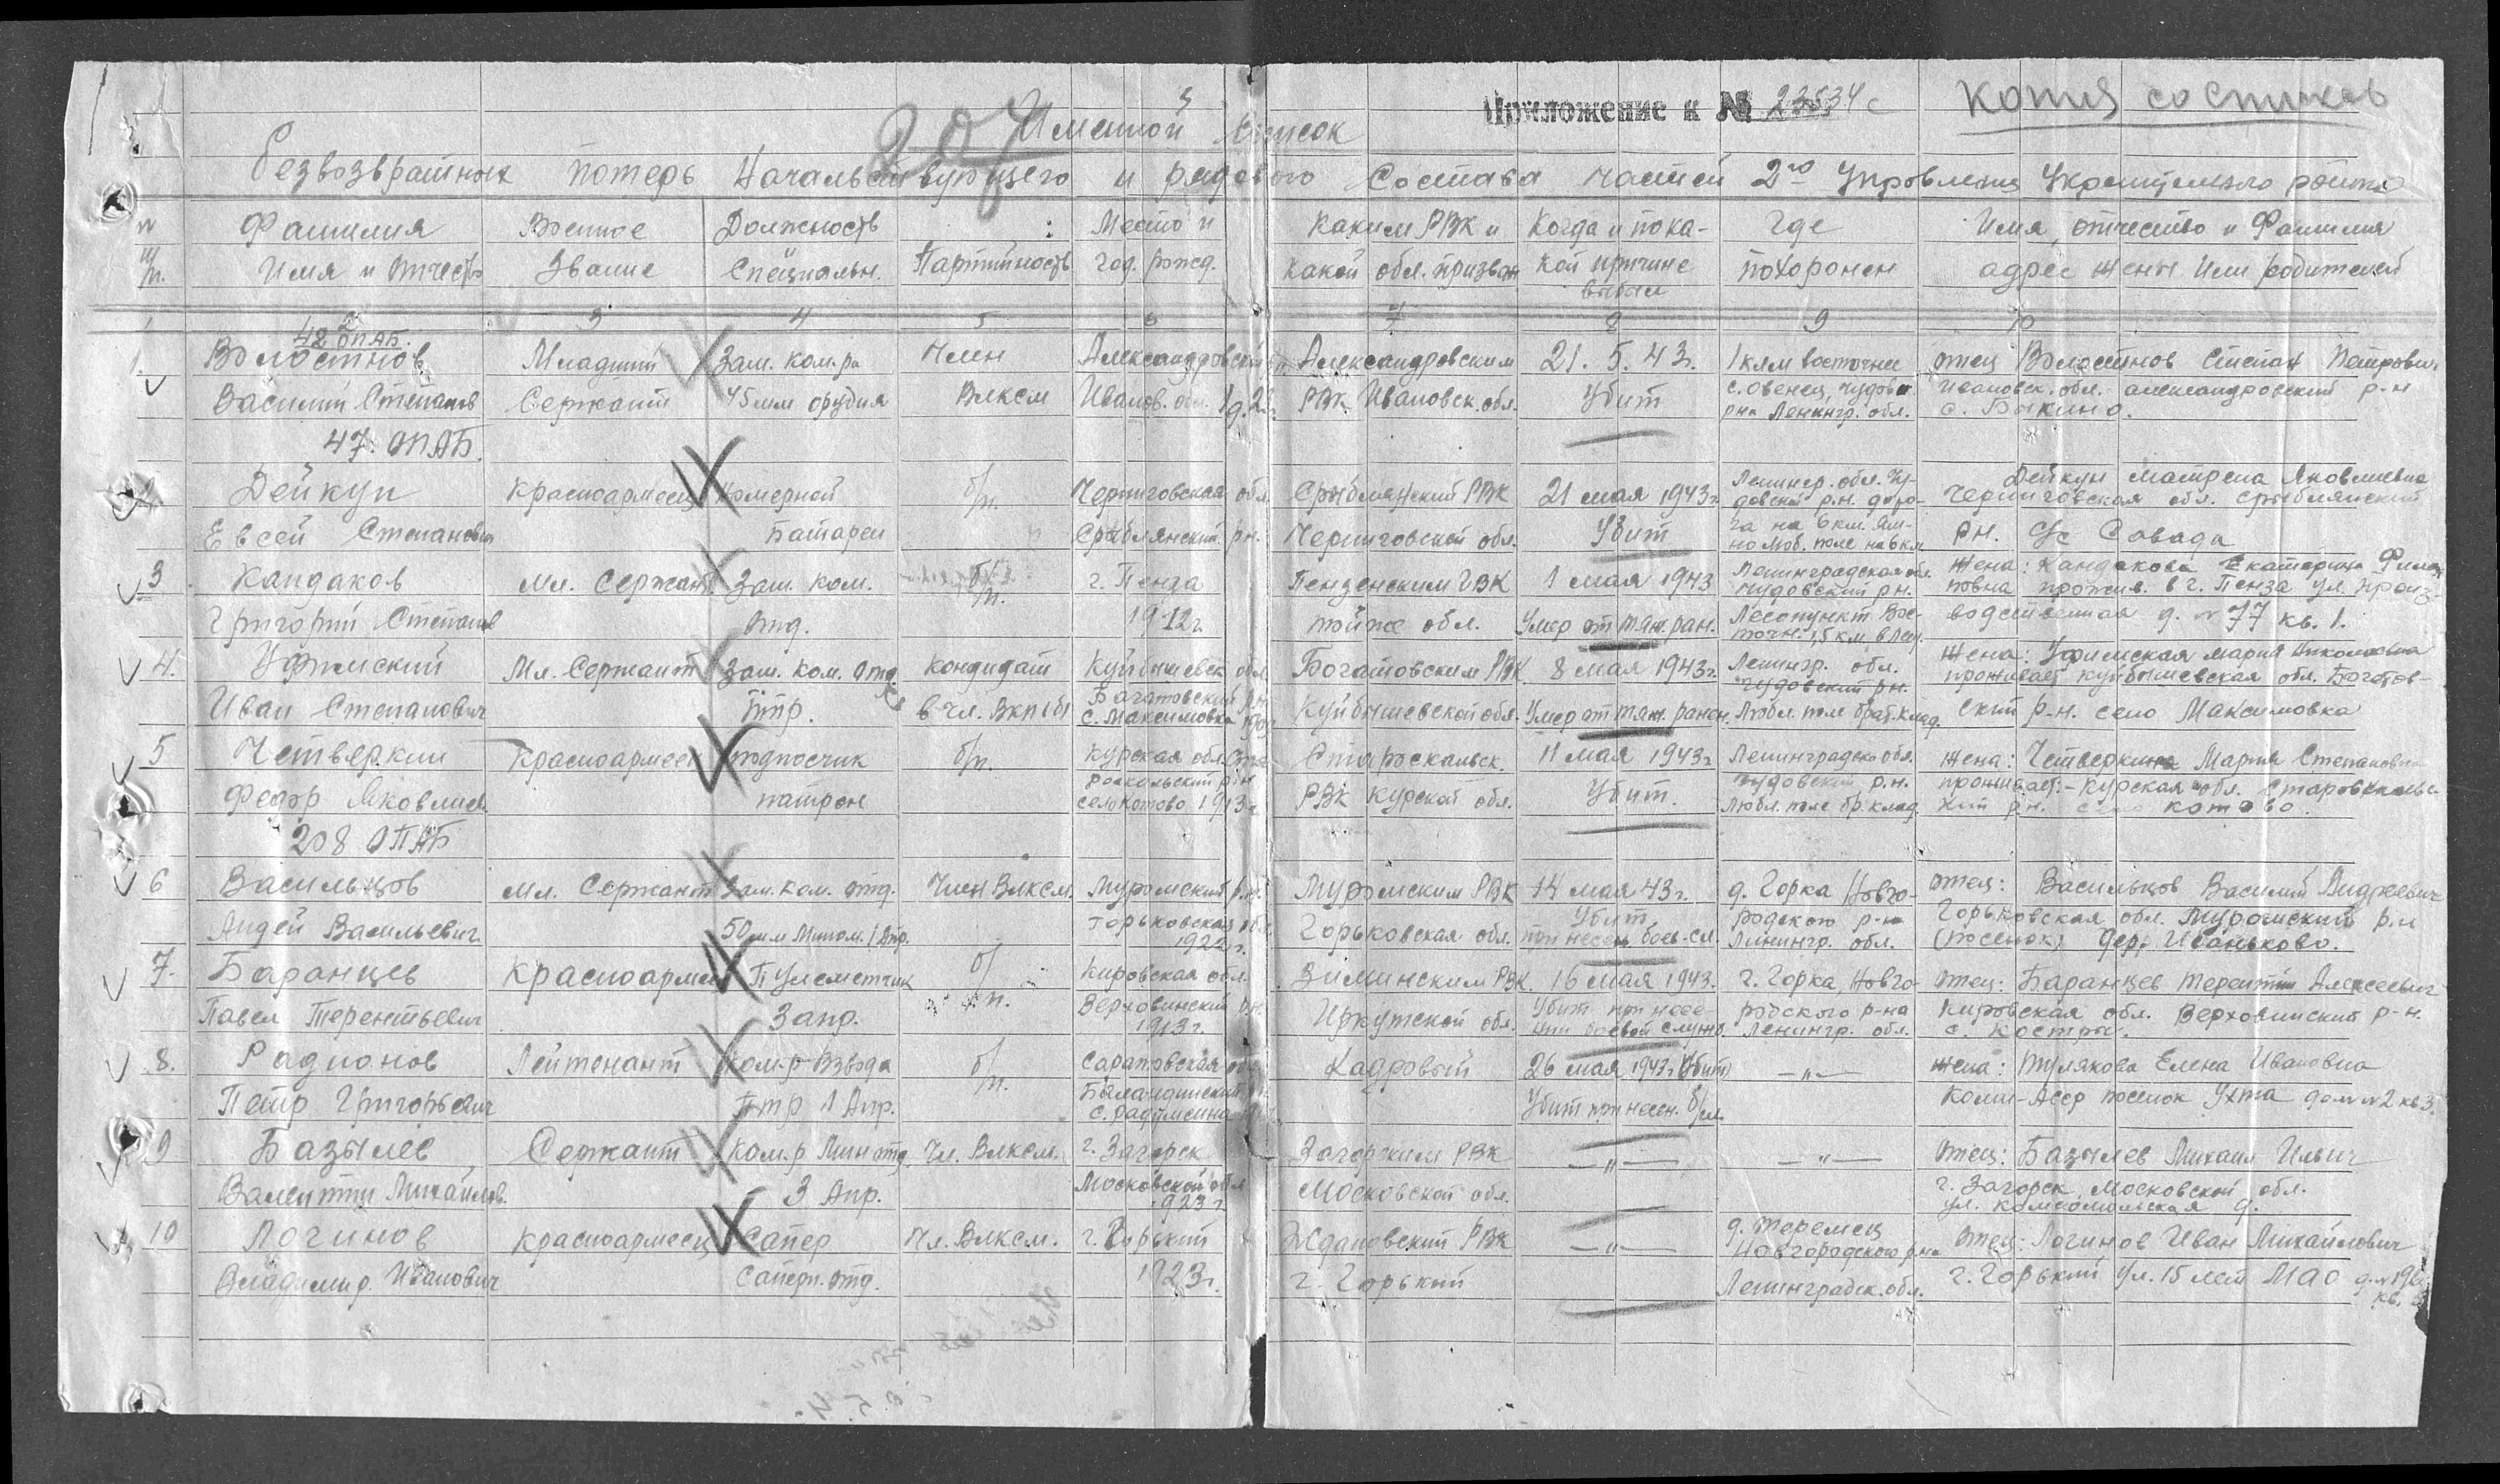 Приложение к № 23534с
копия со списков
207
Именной список
безвозвратных потерь начальствующего и рядового состава частей 2го Управления Укрепленного района
№ п/п. Фамилия Имя и Отчество Военное Звание Должность Специальн. Партийность Место и год. рожд. Каким РВК и какой обл. призван Когда и по какой причине выбыл Где похоронен Имя, отчество и Фамилия адрес жены или родителей
2 3 4 5 6 7 8 9 10
42 ОПАБ.
1. Волостнов Младший Зам. ком-ра Член Александровский Александровским 21. 5. 43г. 1 клм восточнее отец Волостнов Степан Петрович
Василий Степанов Сержант 45мм орудия Влксм Иванов. обл. РВК Ивановск. обл. Убит с. Овенец, Чудовс. Ивановск. обл. александровский р-н
р-на Ленингр. обл. с. Быкино.
47. ОПАБ.
2 Дейкун Красноармеец Номерной б/п. Черниговская обл. Срибнянский РВК 21 мая 1943г. Ленингр. обл. Чудовский р.н. доро- Дейкун Матрена Яковлевна
Черниговская обл. Срибнянский
Евсей Степанович Батареи Срибнянский р.н. Черниговской обл. Убит га на 6 км. рн.
3 Кандаков Мл. Сержант Зам. ком. б/п. г. Пенза Пензенским ГВК 1 мая 1943 Ленинградская обл. Чудовский рн. Жена: Кандакова Екатерина Филип
повна прожив. в г. Пенза ул. Произ-
Григорий Степанов отд. 1912г. той же обл. Умер от тяж. ран. Лесопункт Вос- точн. 1,5 км. водственная д. № 77 кв. 1.
4. Уфимский Мл. Сержант Зам. ком. отд. кондидат Куйбышевск обл Богатовским РВК 8 мая 1943г. Ленингр. обл. Чудовский рн. Жена: Уфимская Мария Николаевна
проживает Куйбышевская обл. Богатов-
Иван Степанович птр. в чл. Вкп(б) Багатовский р.н. с. Максимовка Куйбышевской обл. Умер от тяж. ранен. Любл. поле брат. клад. ский р-н. село Максимовка
5 Четверкин Красноармеец подносчик б/п. Курская обл. Ста Старооскольск. 11 мая 1943г. Ленинградск обл. Жена: Четверкина Мария Степановна
Федор Яковлев. патрон роскольский р.н. село Котово 1913г. РВК Курской обл. Убит. Чудовский р.н. Любл. поле бр. клад. проживает:- Курская обл. Старооскольс-
кий р.н. село котово.
208 ОПАБ
6 Васильцов Мл. Сержант Зам. ком. отд. Член Влксм. Муромский р.н. Муромским РВК 14 мая 43г. д. Горка Новго- отец: Васильцов Василий Андреевич
Андей Васильевич 50мм Мином. 1 Апр. Горьковская обл. Горьковская обл. Убит, при несен боев. сл. родского р-н Ленингр. обл. Горьковская обл. Муромский р-н
(поселок) дер. Иваньково.
7. Баранцев Красноармеец Пулеметчик б/п. Кировская обл. Зиминским РВК. 16 мая 1943. г. Горка, Новго- отец: Баранцев Терентий Алексеевич
Павел Терентьевич 3 апр. Верховинский р.н. 1913г. Иркутской обл. Убит при несе- нии боевой служб. родского р-на Ленингр. обл. Кировская обл. Верховинский р-н.
8. Радионов Лейтенант Ком-р Взвода б/п. Саратовская обл Кадровый 26 мая 1943г. Убит —"— жена: Тулякова Елена Ивановна
Петр Григорьевич птр 1 Апр. Убит при несен. б/сл. Коми-Асср поселок Ухта дом № 2 кв 3.
9 Базылев Сержант Ком-р Мин отд. Чл. Влксм. г. Загорск Загорским РВК —"— —"— Отец: Базылев Михаил Ильич
Валентин Михайлов. 3 Апр. Московской обл 1923г. Московской обл. г. Загорск, Московской обл.
ул. Комсомольская д.
10 Логинов Красноармеец Сапер Чл. Влксм. г. Горький Ждановский РВК —"— д. Теремец Новгородского р-на Отец: Логинов Иван Михайлович
Владимир Иванович Саперн. отд. 1923г. г. Горький Ленинградск. обл. г. Горький Ул. 15 лет
кв.